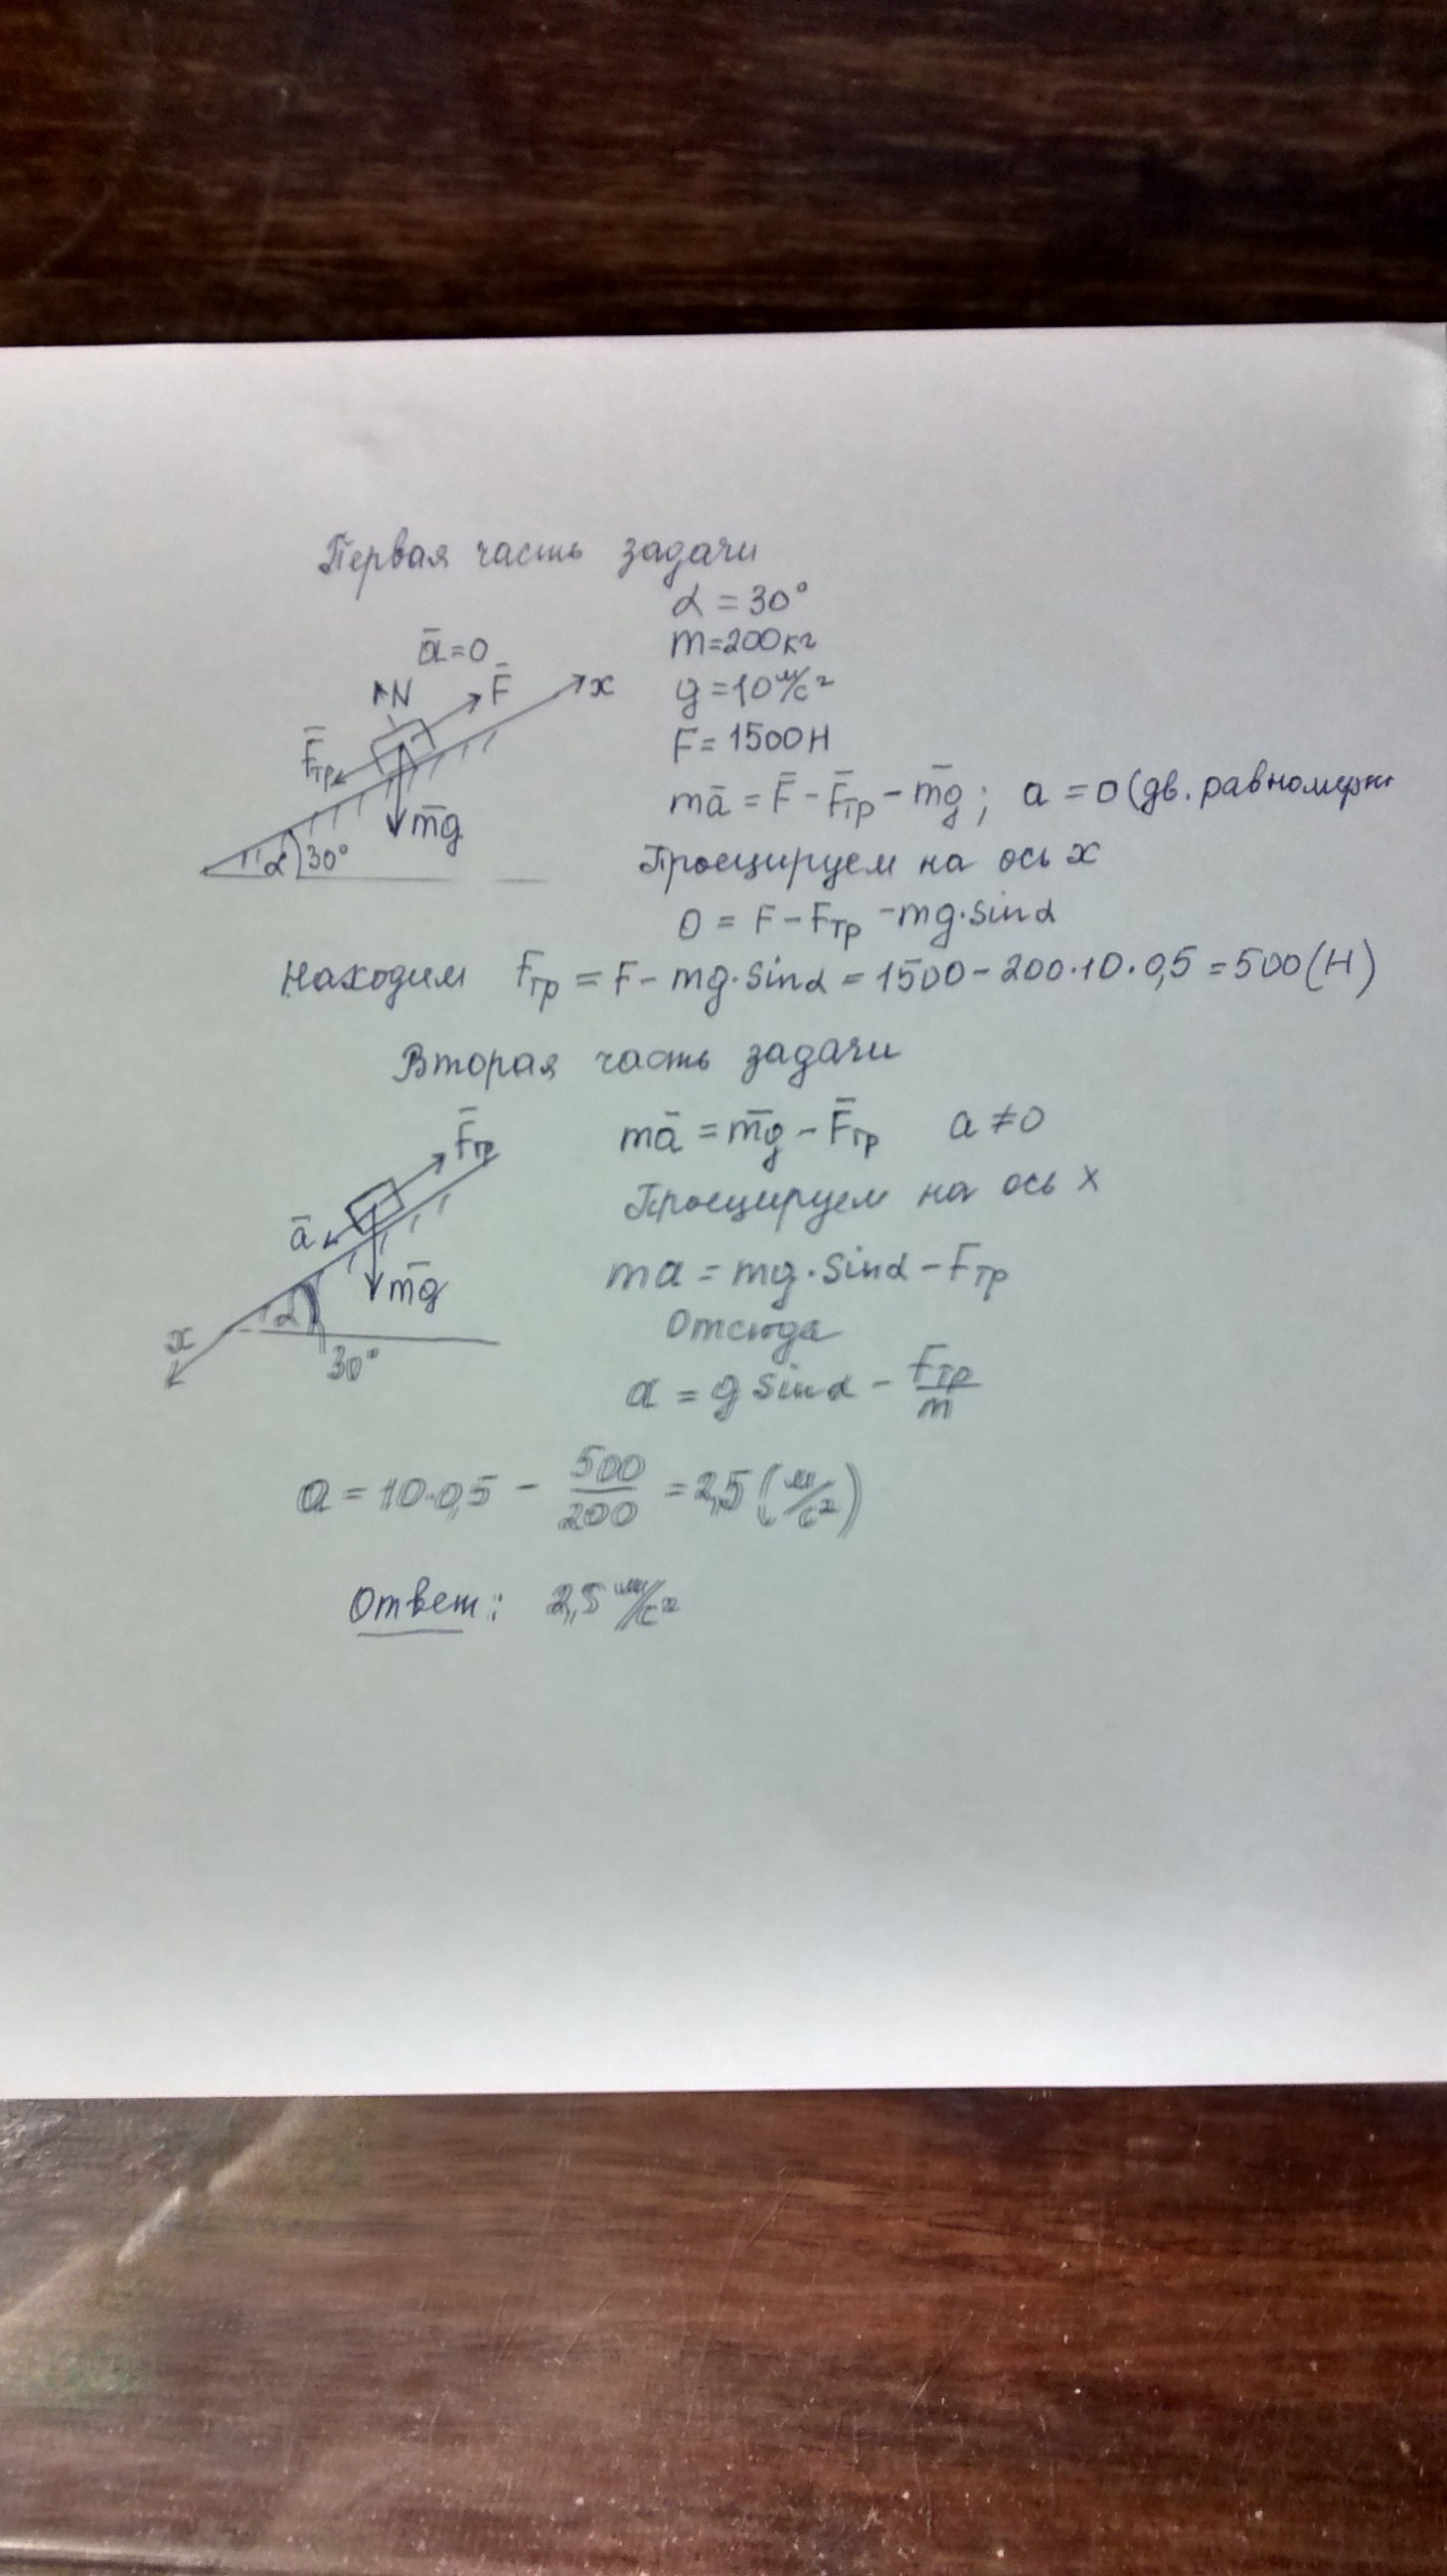 Первая часть задачи
α = 30°
m=200кг
g=10 м/с²
F= 1500Н
ā=0
N
F̄
x
F̄тр
m̄g
α 30°
mā = F̄ - F̄тр - m̄g ; a = 0 (дв. равномерн
Проецируем на ось x
0 = F - Fтр - mg·sinα
Находим Fтр = F - mg·sinα = 1500 - 200·10·0,5 = 500 (Н)
Вторая часть задачи
F̄тр
ā
m̄g
x
α
30°
mā = m̄g - F̄тр a ≠ 0
Проецируем на ось x
ma = mg·sinα - Fтр
Отсюда
a = g sinα - Fтр/m
a = 10·0,5 - 500/200 = 2,5 (м/с²)
Ответ: 2,5 м/с²